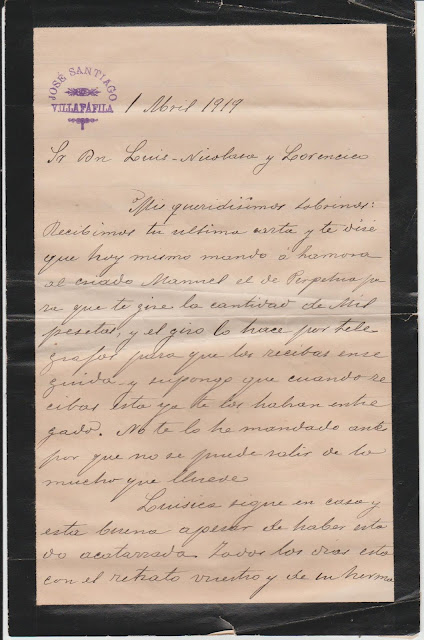 JOSÉ SANTIAGO
VILLAFÁFILA
1 Abril 1919
Sr Dn Luis-Nicolasa y Lorencico
Mis queridisimos sobrinos:
Recibimos tu ultima carta y te dire
que hoy mismo mando á hamora
al criado Manuel el de Perpetua pa
ra que te gire la cantidad de Mil
pesetas, y el giro lo hace por tele
grafos para que los recibas ense
guida y supongo que cuando re
cibas esta ya te los habran entre
gado. No te lo he mandado ante
por que no se puede salir de lo
mucho que llueve
Luisica sigue en casa y
esta buena apesar de haber esta
do acatarrada. Todos los dias esta
con el retrato vuestro y de su herma